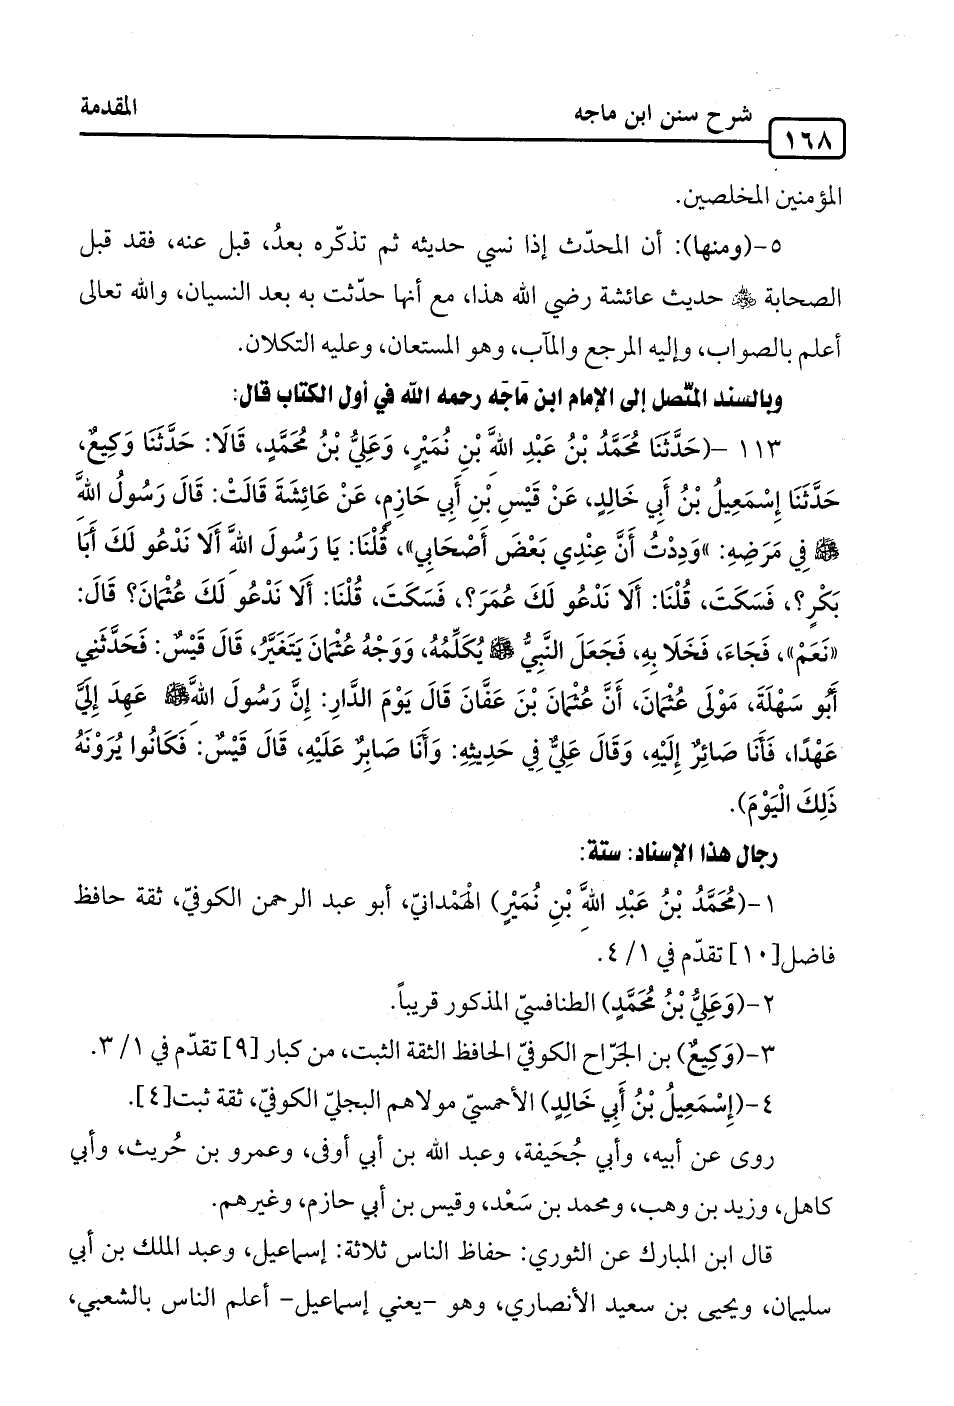 شرح سنن ابن ماجه
المقدمة
١٦٨
المؤمنين المخلصين.
٥-(ومنها): أن المحدّث إذا نسي حديثه ثم تذكّره بعدُ، قبل عنه، فقد قبل
الصحابة ﷺ حديث عائشة رضي الله هذا، مع أنها حدّثت به بعد النسيان، والله تعالى
أعلم بالصواب، وإليه المرجع والمآب، وهو المستعان، وعليه التكلان.
وبالسند المتّصل إلى الإمام ابن مَاجَه رحمه الله في أول الكتاب قال:
١١٣ -(حَدَّثَنَا مُحَمَّدُ بْنُ عَبْدِ اللهِ بْنِ نُمَيْرٍ، وَعَلِيُّ بْنُ مُحَمَّدٍ، قَالَا: حَدَّثَنَا وَكِيعٌ،
حَدَّثَنَا إِسْمَعِيلُ بْنُ أَبِي خَالِدٍ، عَنْ قَيْسِ بْنِ أَبِي حَازِمٍ، عَنْ عَائِشَةَ قَالَتْ: قَالَ رَسُولُ اللهِ
ﷺ فِي مَرَضِهِ: «وَدِدْتُ أَنَّ عِنْدِي بَعْضَ أَصْحَابِي»، قُلْنَا: يَا رَسُولَ اللهِ أَلَا نَدْعُو لَكَ أَبَا
بَكْرٍ؟، فَسَكَتَ، قُلْنَا: أَلَا نَدْعُو لَكَ عُمَرَ؟، فَسَكَتَ، قُلْنَا: أَلَا نَدْعُو لَكَ عُثْمَانَ؟ قَالَ:
«نَعَمْ»، فَجَاءَ، فَخَلَا بِهِ، فَجَعَلَ النَّبِيُّ ﷺ يُكَلِّمُهُ، وَوَجْهُ عُثْمَانَ يَتَغَيَّرُ، قَالَ قَيْسٌ: فَحَدَّثَنِي
أَبُو سَهْلَةَ، مَوْلَى عُثْمَانَ، أَنَّ عُثْمَانَ بْنَ عَفَّانَ قَالَ يَوْمَ الدَّارِ: إِنَّ رَسُولَ اللهِ ﷺ عَهِدَ إِلَيَّ
عَهْدًا، فَأَنَا صَائِرٌ إِلَيْهِ، وَقَالَ عَلِيٌّ فِي حَدِيثِهِ: وَأَنَا صَابِرٌ عَلَيْهِ، قَالَ قَيْسٌ: فَكَانُوا يُرَوْنَهُ
ذَلِكَ الْيَوْمَ).
رجال هذا الإسناد: ستة:
١-(مُحَمَّدُ بْنُ عَبْدِ اللهِ بْنِ نُمَيْرٍ) الْهَمْدانيّ، أبو عبد الرحمن الكوفيّ، ثقة حافظ
فاضل[١٠] تقدّم في ١/ ٤.
٢-(وَعَلِيُّ بْنُ مُحَمَّدٍ) الطنافسيّ المذكور قريباً.
٣-(وَكِيعٌ) بن الجَرّاح الكوفيّ الحافظ الثقة الثبت، من كبار [٩] تقدّم في ١/ ٣.
٤-(إِسْمَعِيلُ بْنُ أَبِي خَالِدٍ) الأحمسيّ مولاهم البجليّ الكوفيّ، ثقة ثبت[٤].
روى عن أبيه، وأبي جُحَيفة، وعبد الله بن أبي أوفى، وعمرو بن حُريث، وأبي
كاهل، وزيد بن وهب، ومحمد بن سَعْد، وقيس بن أبي حازم، وغيرهم.
قال ابن المبارك عن الثوري: حفاظ الناس ثلاثة: إسماعيل، وعبد الملك بن أبي
سليمان، ويحيى بن سعيد الأنصاري، وهو -يعني إسماعيل- أعلم الناس بالشعبي،